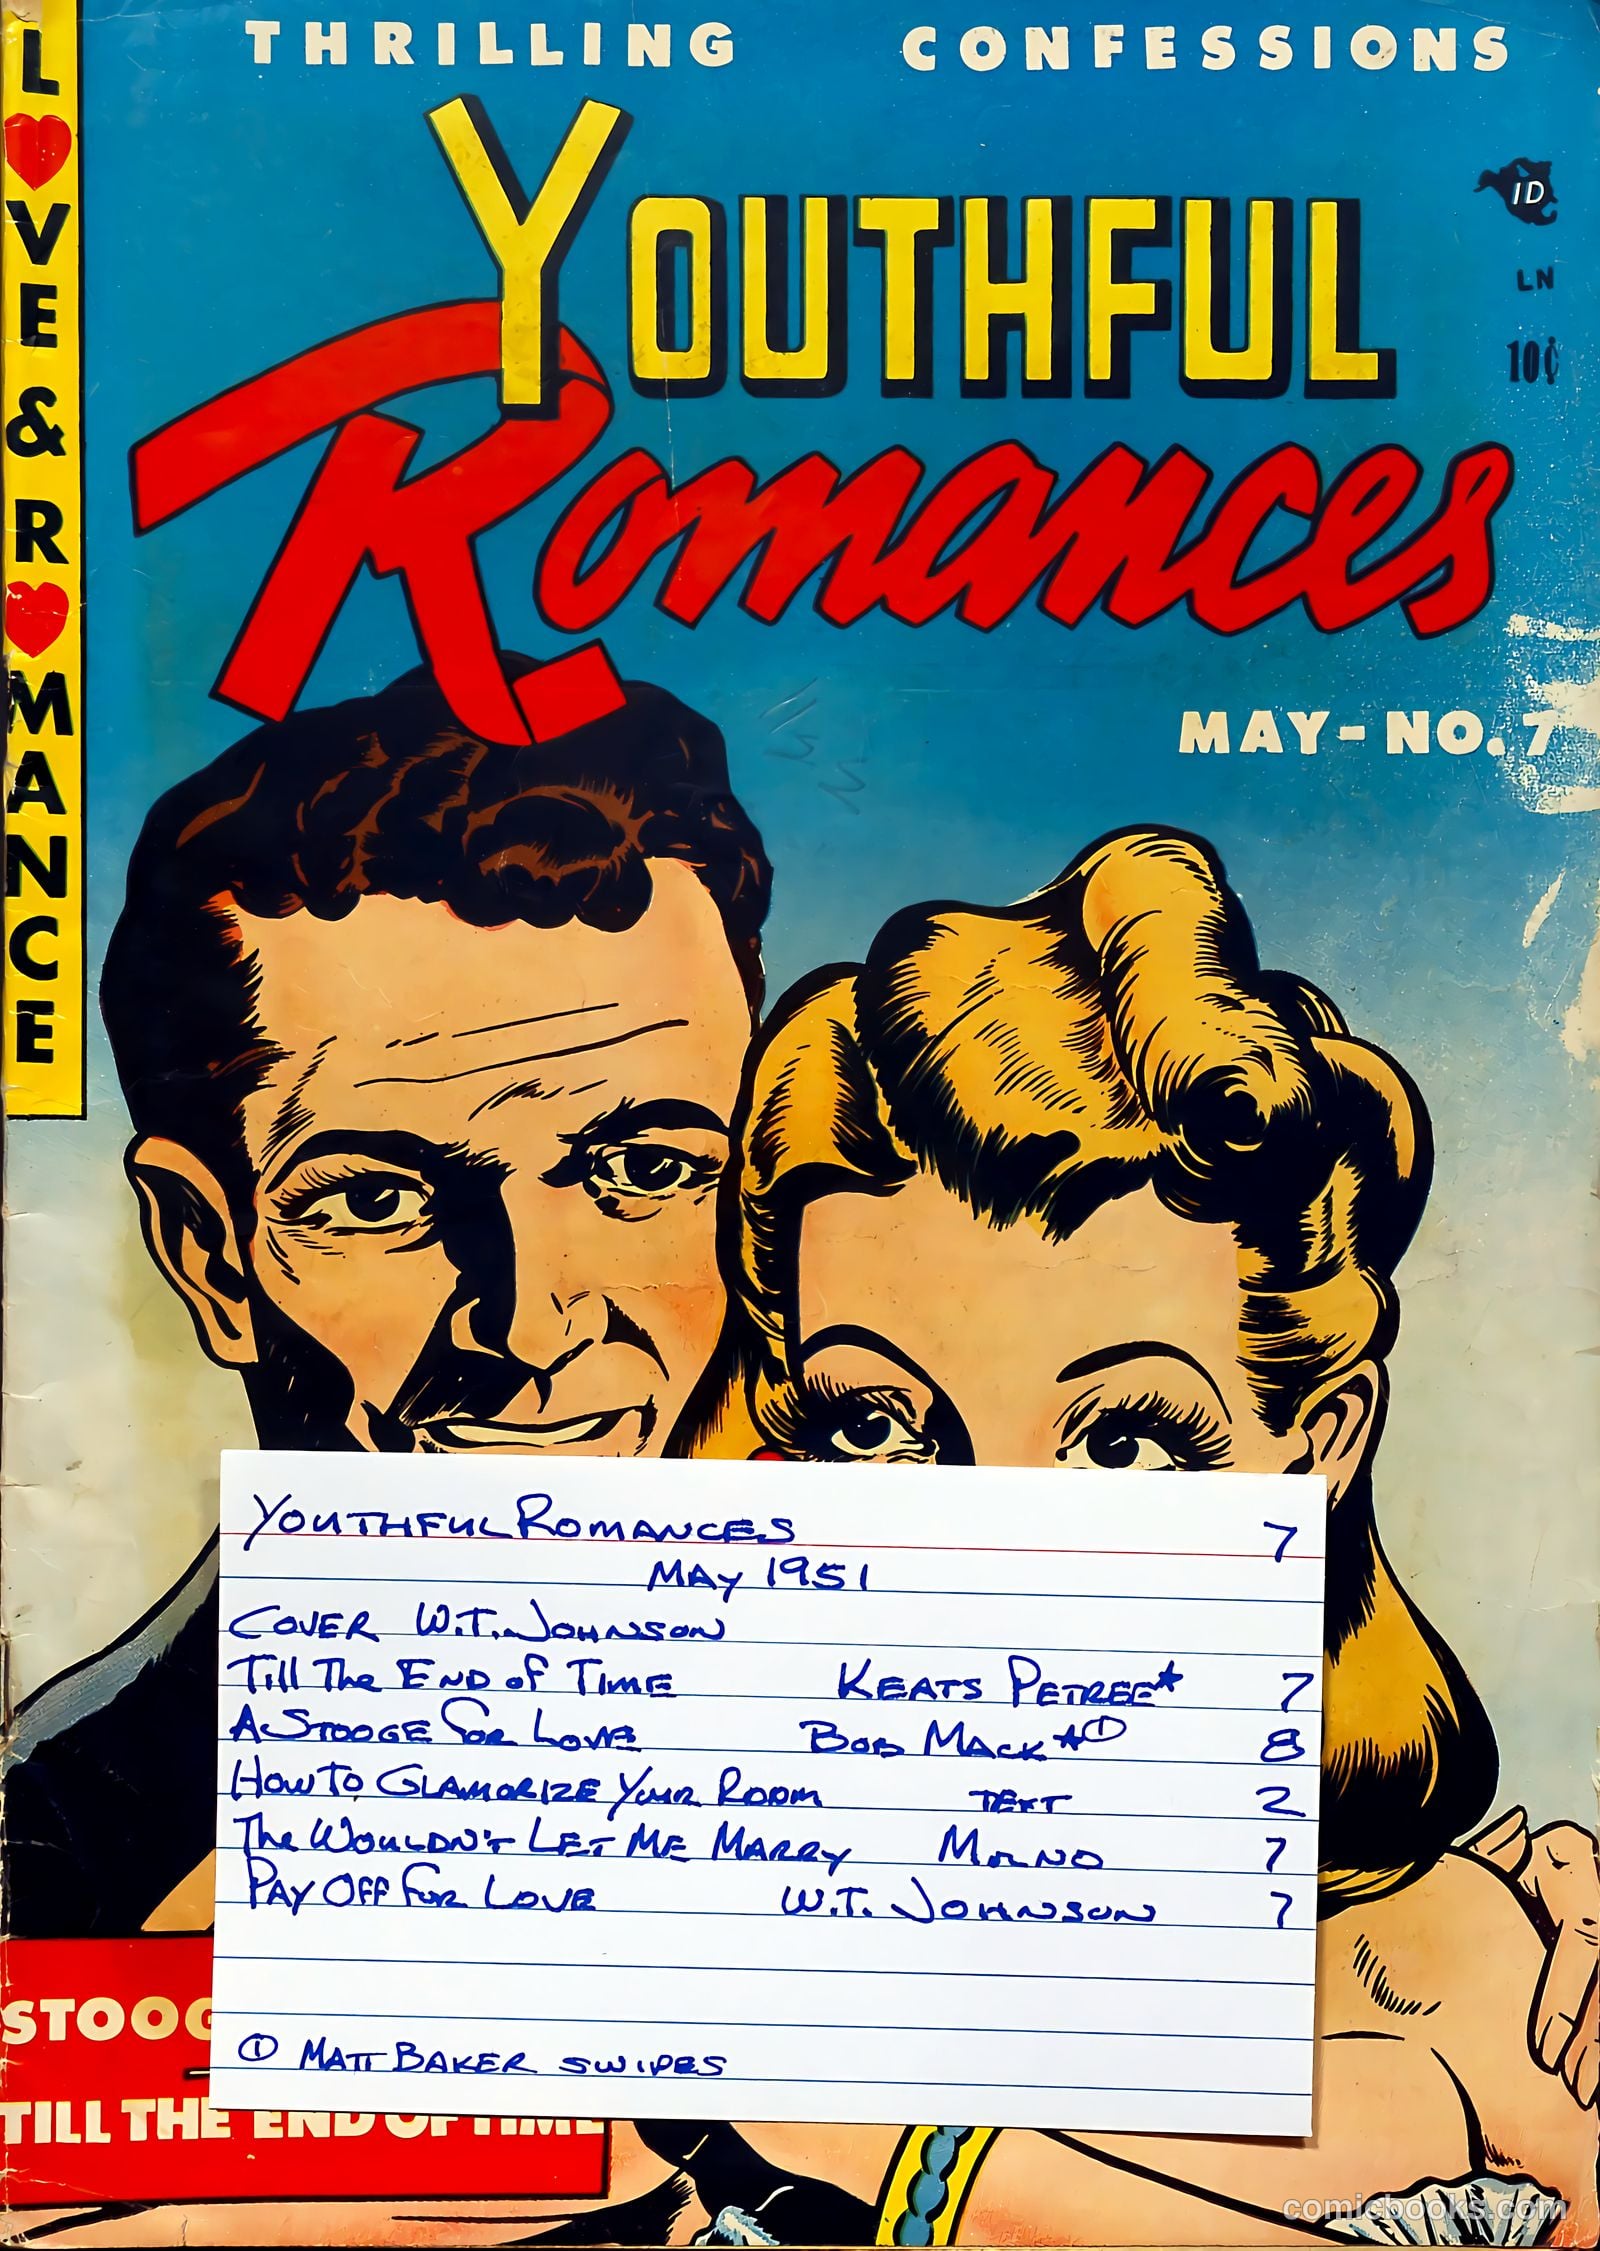 THRILLING CONFESSIONS
LOVE & ROMANCE
YOUTHFUL
Romances
ID
LN
10¢
MAY-NO. 7
YOUTHFUL ROMANCES 7
MAY 1951
COVER W.T. JOHNSON
Till The END of TIME KEATS PETREE* 7
A STOOGE for LOVE BOB MACK*① 8
HOW TO GLAMORIZE YOUR ROOM TEXT 2
The WOULDN'T LET ME MARRY 7
PAY OFF for LOVE W.T. JOHNSON 7
① MATT BAKER SWIPES
STOOG
TILL THE END OF TIME
comicbooks.com